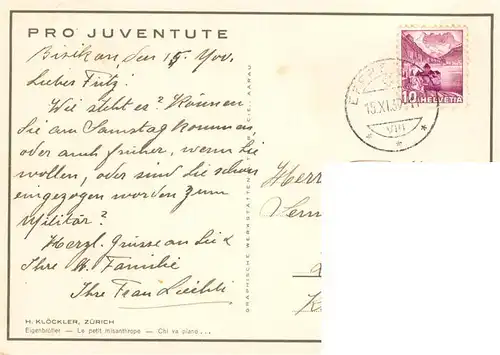 PRO JUVENTUTE
Bisikon, den 15. Nov.
Lieber Fritz!
Wie steht es? Können
Sie am Samstag kommen,
oder auch früher, wenn Sie
wollen, oder sind Sie schon
eingezogen worden zum
Militär?
Herzl. Grüsse an Sie &
Ihre Familie
Ihre Frau
H. KLÖCKLER, ZÜRICH
Eigenbrötler — Le petit misanthrope — Chi va piano . . .
GRAPHISCHE WERKSTÄTTEN AARAU
10 HELVETIA
15.XI.
VIII
Herr